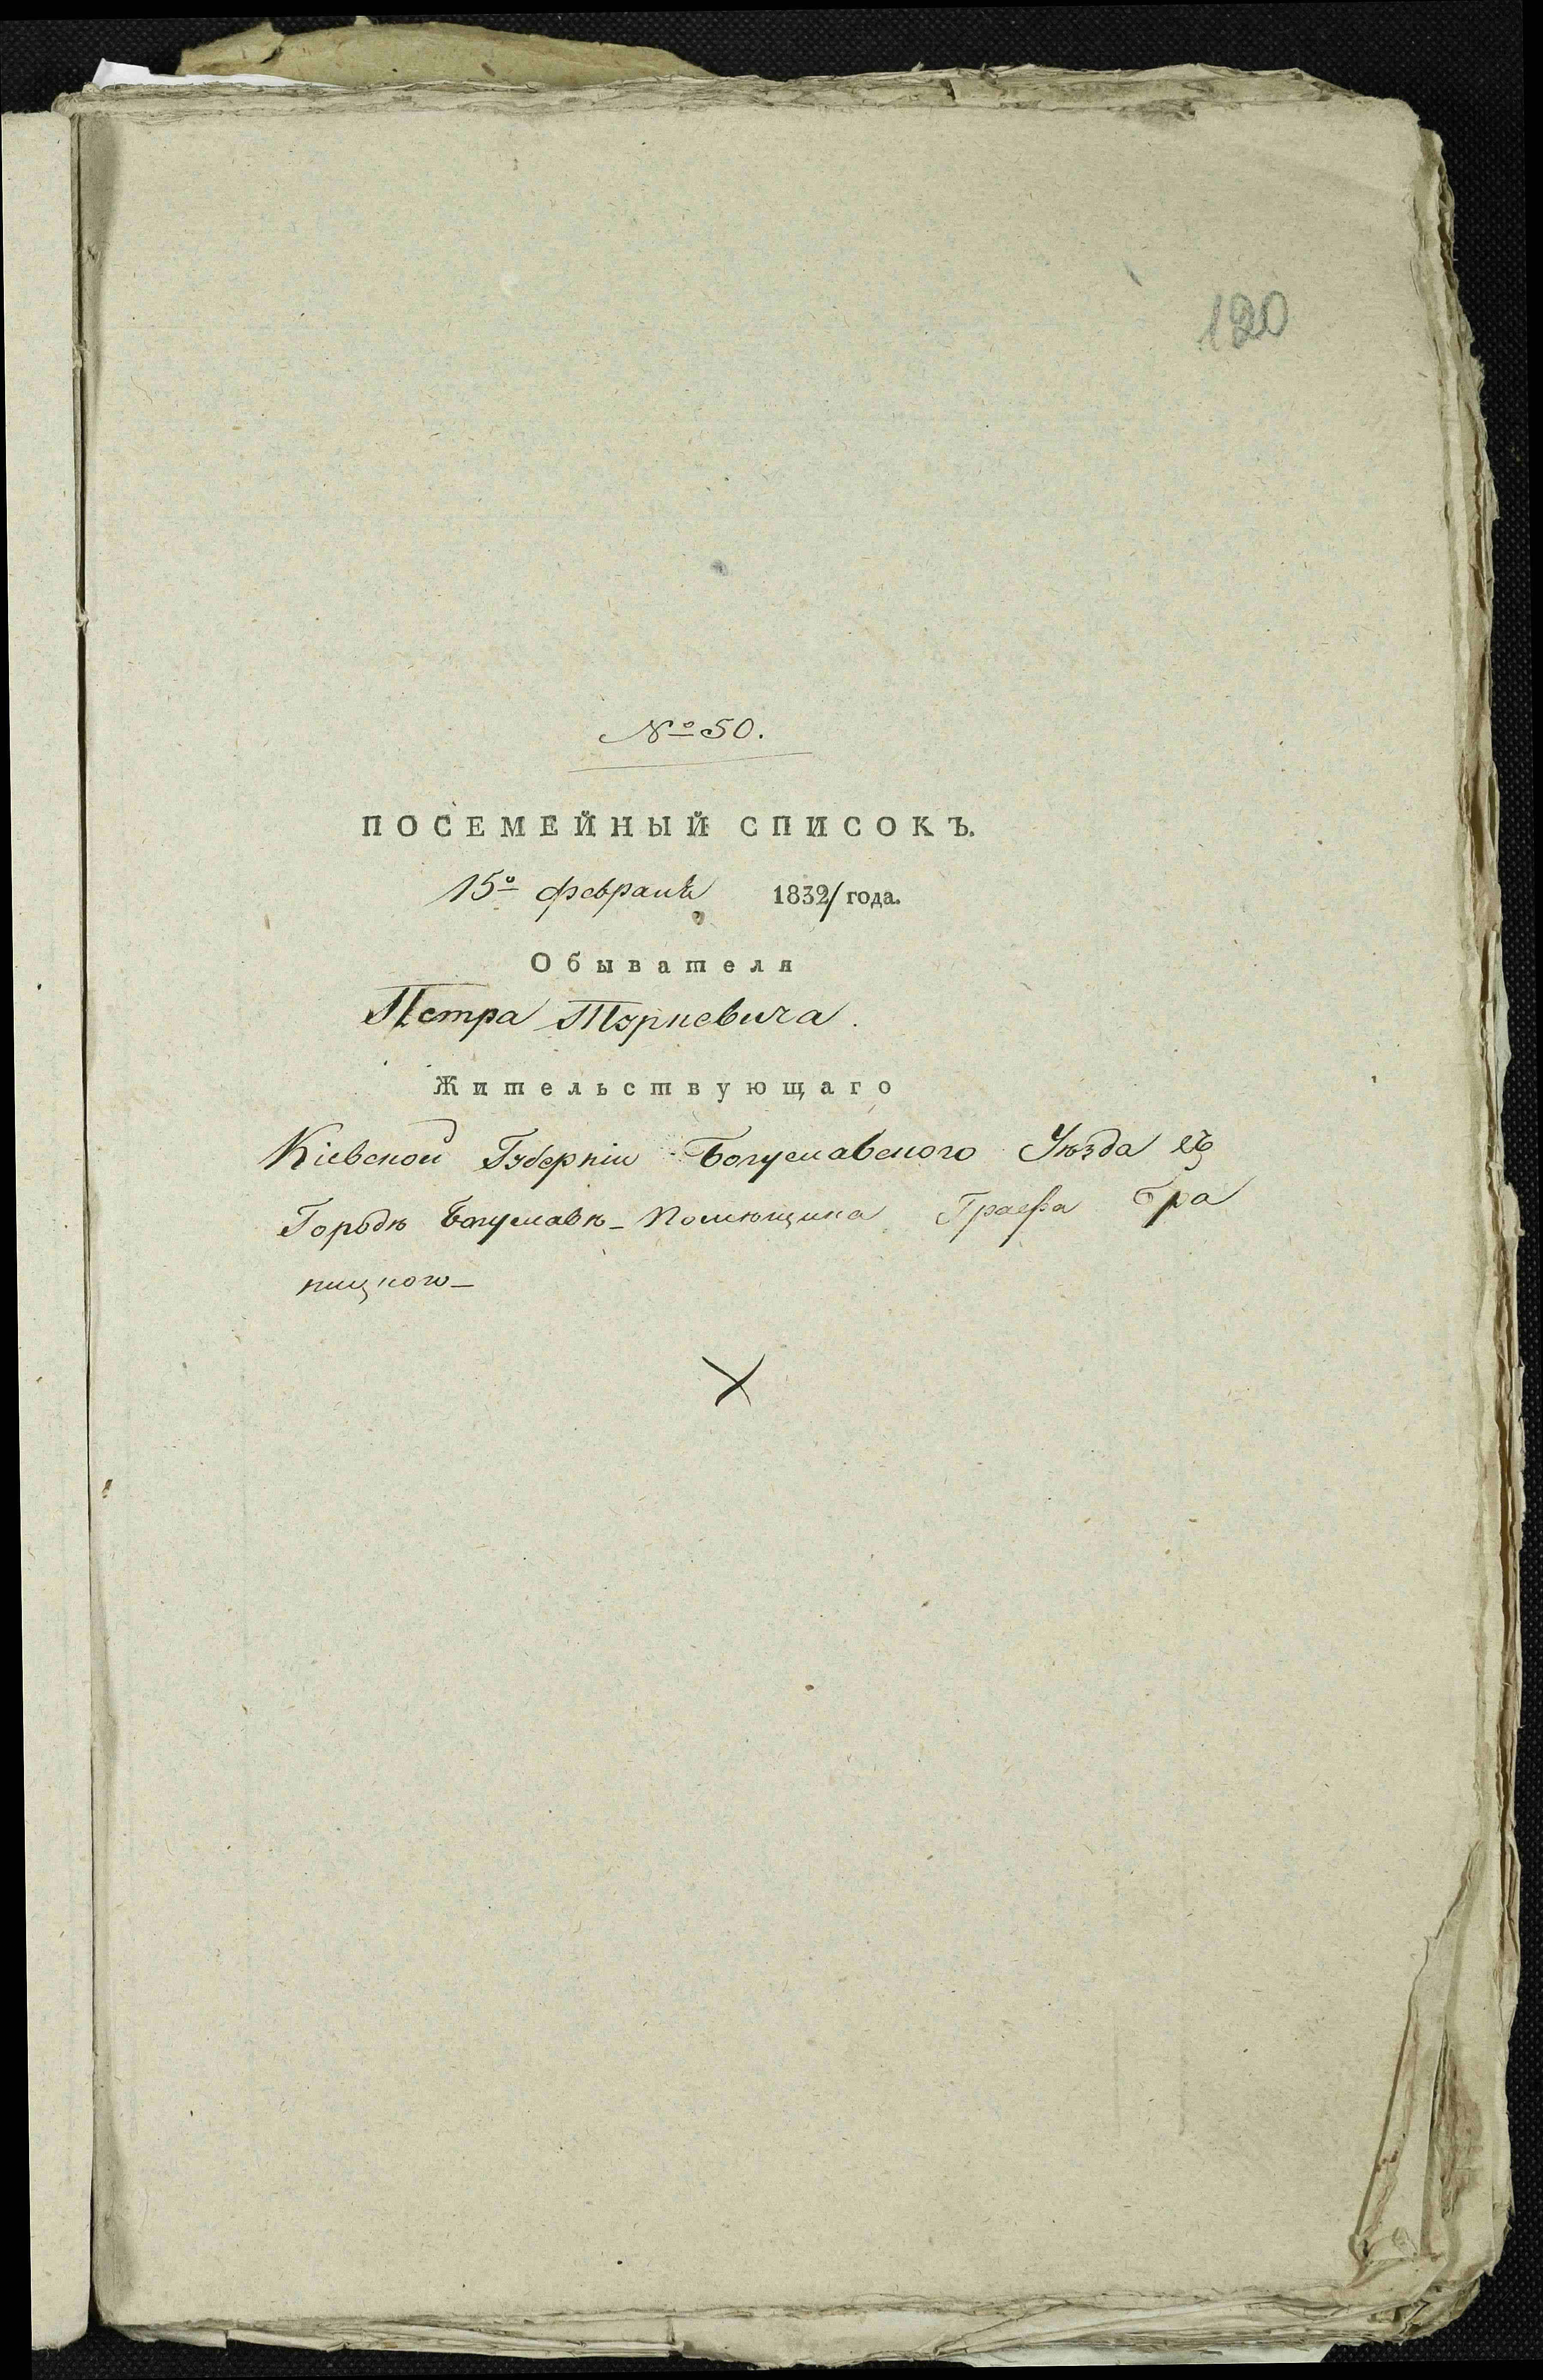 120
№ 50.
ПОСЕМЕЙНЫЙ СПИСОКЪ.
15º февраля 1832/ года.
Обывателя
Петра Турневича.
Жительствующаго
Кіевской Губерніи Богуславского Уѣзда въ
Городѣ Богуславѣ - Помѣщика Графа Бра
ницкого -